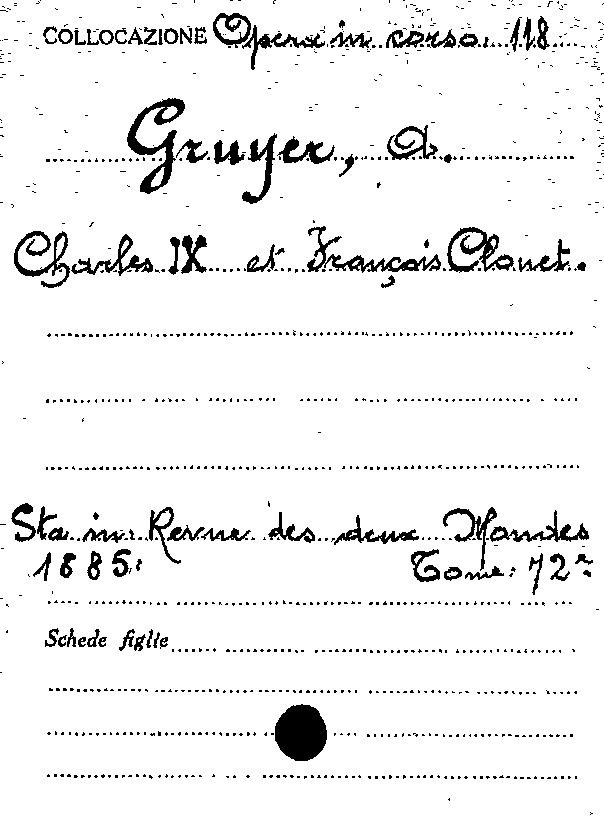 COLLOCAZIONE Opera in corso. 118
Gruyer, A.
Charles IX et François Clouet.
Sta in: Revue des deux Mondes
1885: Tome: 72e
Schede figlie